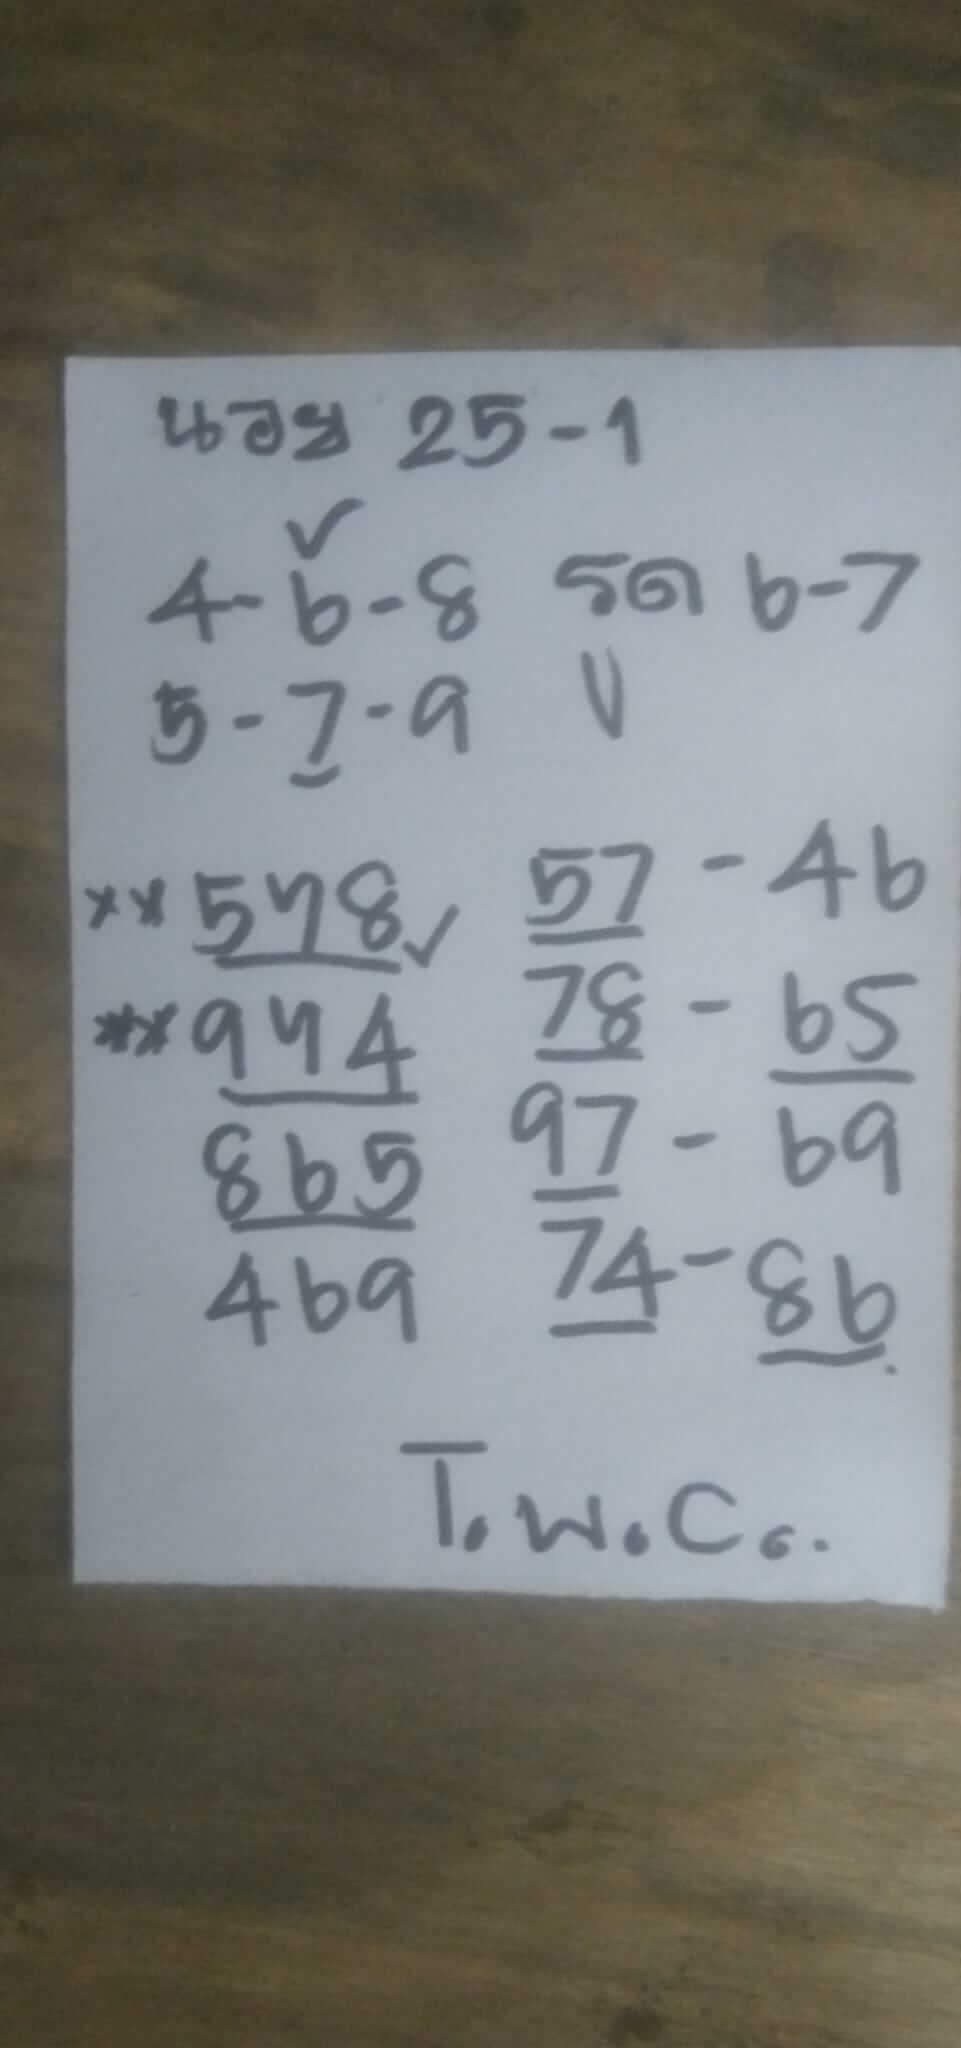 นอย 25-1
4-6-8 รูด 6-7
5-7-9
578 57 - 46
974 78 - 65
865 97 - 69
469 74 - 86
T.W.C.